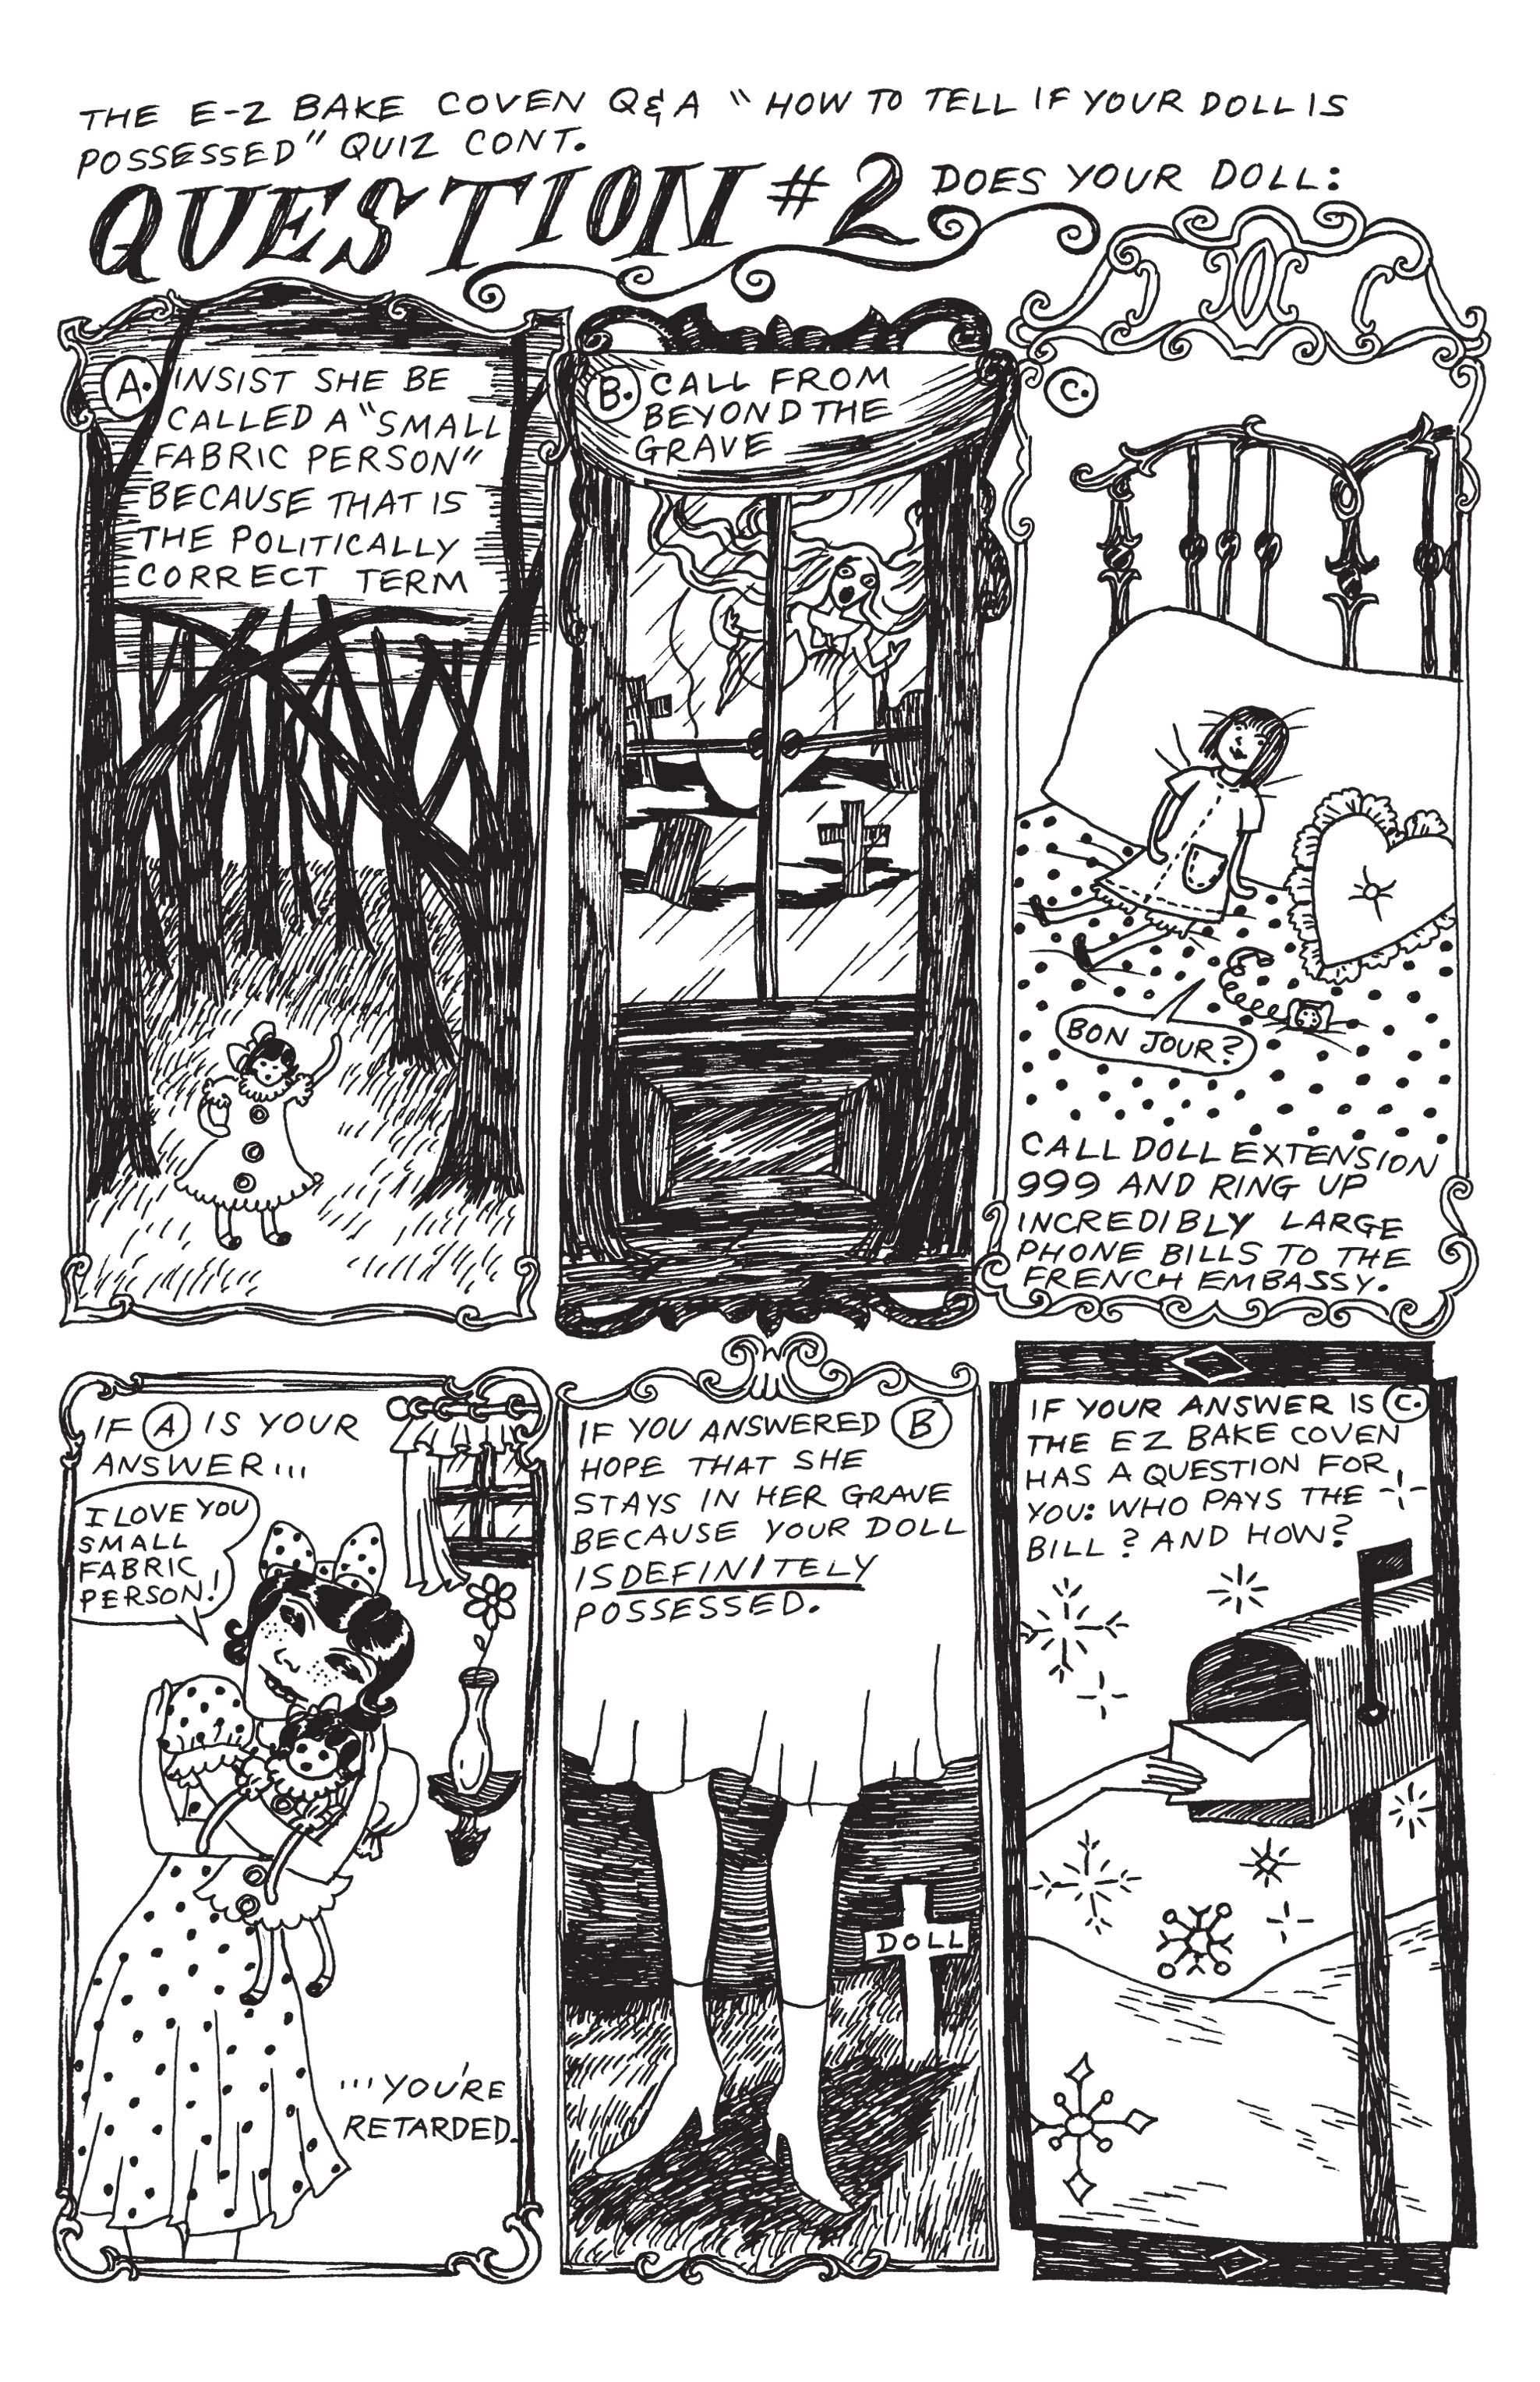 THE E-Z BAKE COVEN Q&A "HOW TO TELL IF YOUR DOLL IS
POSSESSED" QUIZ CONT.
QUESTION #2 DOES YOUR DOLL:
A. INSIST SHE BE
CALLED A "SMALL
FABRIC PERSON"
BECAUSE THAT IS
THE POLITICALLY
CORRECT TERM
B. CALL FROM
BEYOND THE
GRAVE
C.
BON JOUR?
CALL DOLL EXTENSION
999 AND RING UP
INCREDIBLY LARGE
PHONE BILLS TO THE
FRENCH EMBASSY.
IF A IS YOUR
ANSWER...
I LOVE YOU
SMALL
FABRIC
PERSON!
...YOU'RE
RETARDED.
IF YOU ANSWERED B
HOPE THAT SHE
STAYS IN HER GRAVE
BECAUSE YOUR DOLL
IS DEFINITELY
POSSESSED.
DOLL
IF YOUR ANSWER IS C.
THE EZ BAKE COVEN
HAS A QUESTION FOR
YOU: WHO PAYS THE
BILL? AND HOW?